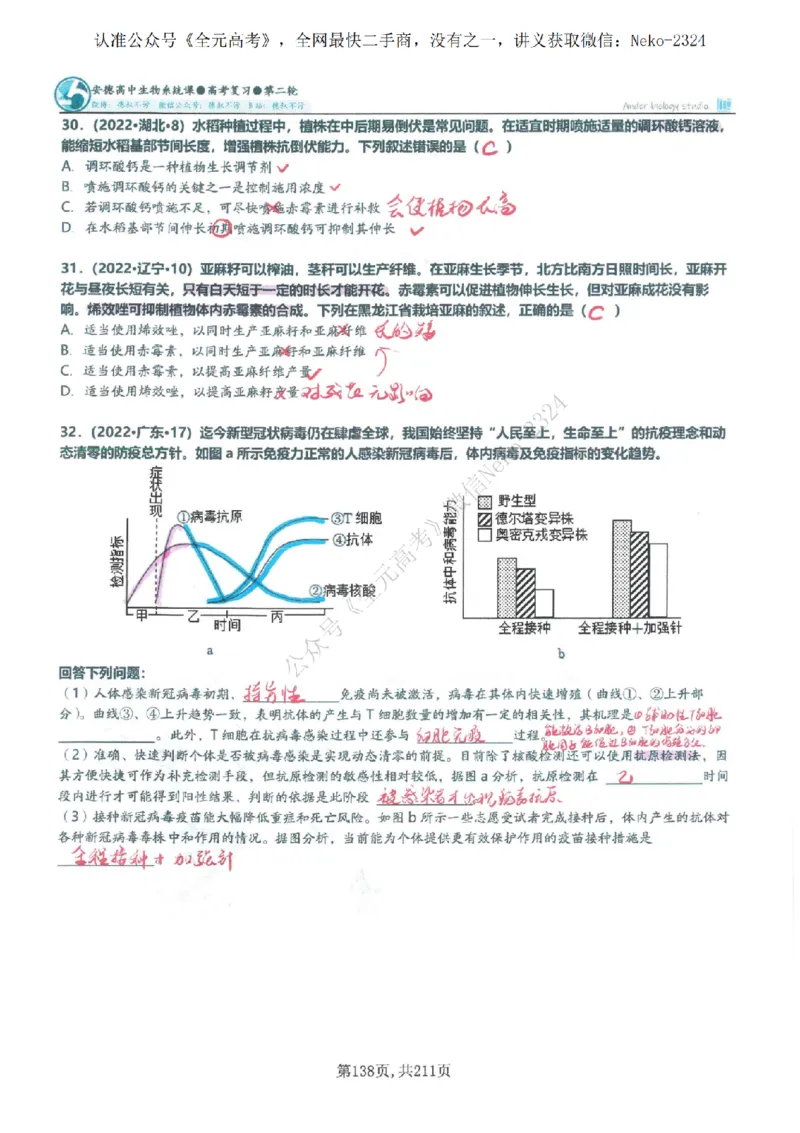 认准公众号《全元高考》，全网最快二手商，没有之一，讲义获取微信：Neko-2324
安德高中生物系统课●高考复习●第二轮
微博：德叔不淳 微信公众号：德叔不淳 B站：德叔不淳
Ander biology studio
30.（2022•湖北•8）水稻种植过程中，植株在中后期易倒伏是常见问题。在适宜时期喷施适量的调环酸钙溶液，
能缩短水稻基部节间长度，增强植株抗倒伏能力。下列叙述错误的是（ C ）
A. 调环酸钙是一种植物生长调节剂
B. 喷施调环酸钙的关键之一是控制施用浓度
C. 若调环酸钙喷施不足，可尽快喷施赤霉素进行补救 会使植物长高
D. 在水稻基部节间伸长初期喷施调环酸钙可抑制其伸长
31.（2022•辽宁•10）亚麻籽可以榨油，茎秆可以生产纤维。在亚麻生长季节，北方比南方日照时间长，亚麻开
花与昼夜长短有关，只有白天短于一定的时长才能开花。赤霉素可以促进植物伸长生长，但对亚麻成花没有影
响。烯效唑可抑制植物体内赤霉素的合成。下列在黑龙江省栽培亚麻的叙述，正确的是（ C ）
A. 适当使用烯效唑，以同时生产亚麻籽和亚麻纤维
B. 适当使用赤霉素，以同时生产亚麻籽和亚麻纤维
C. 适当使用赤霉素，以提高亚麻纤维产量
D. 适当使用烯效唑，以提高亚麻籽产量 对成花无影响
32.（2022•广东•17）迄今新型冠状病毒仍在肆虐全球，我国始终坚持“人民至上，生命至上”的抗疫理念和动
态清零的防疫总方针。如图 a 所示免疫力正常的人感染新冠病毒后，体内病毒及免疫指标的变化趋势。
症状出现
①病毒抗原
③T 细胞
④抗体
②病毒核酸
检测指标
甲 乙 丙
时间
a
抗体中和病毒能力
野生型
德尔塔变异株
奥密克戎变异株
全程接种 全程接种+加强针
b
公众号《全元高考》微信Neko-2324
回答下列问题：
（1）人体感染新冠病毒初期，特异性免疫尚未被激活，病毒在其体内快速增殖（曲线①、②上升部
分）。曲线③、④上升趋势一致，表明抗体的产生与 T 细胞数量的增加有一定的相关性，其机理是①辅助性T细胞
。此外，T 细胞在抗病毒感染过程中还参与 细胞免疫 过程。
（2）准确、快速判断个体是否被病毒感染是实现动态清零的前提。目前除了核酸检测还可以使用抗原检测法，因
其方便快捷可作为补充检测手段，但抗原检测的敏感性相对较低，据图 a 分析，抗原检测在 乙 时间
段内进行才可能得到阳性结果，判断的依据是此阶段 被感染者才出现病毒抗原
（3）接种新冠病毒疫苗能大幅降低重症和死亡风险。如图 b 所示一些志愿受试者完成接种后，体内产生的抗体对
各种新冠病毒毒株中和作用的情况。据图分析，当前能为个体提供更有效保护作用的疫苗接种措施是
全程接种+加强针
第138页,共211页